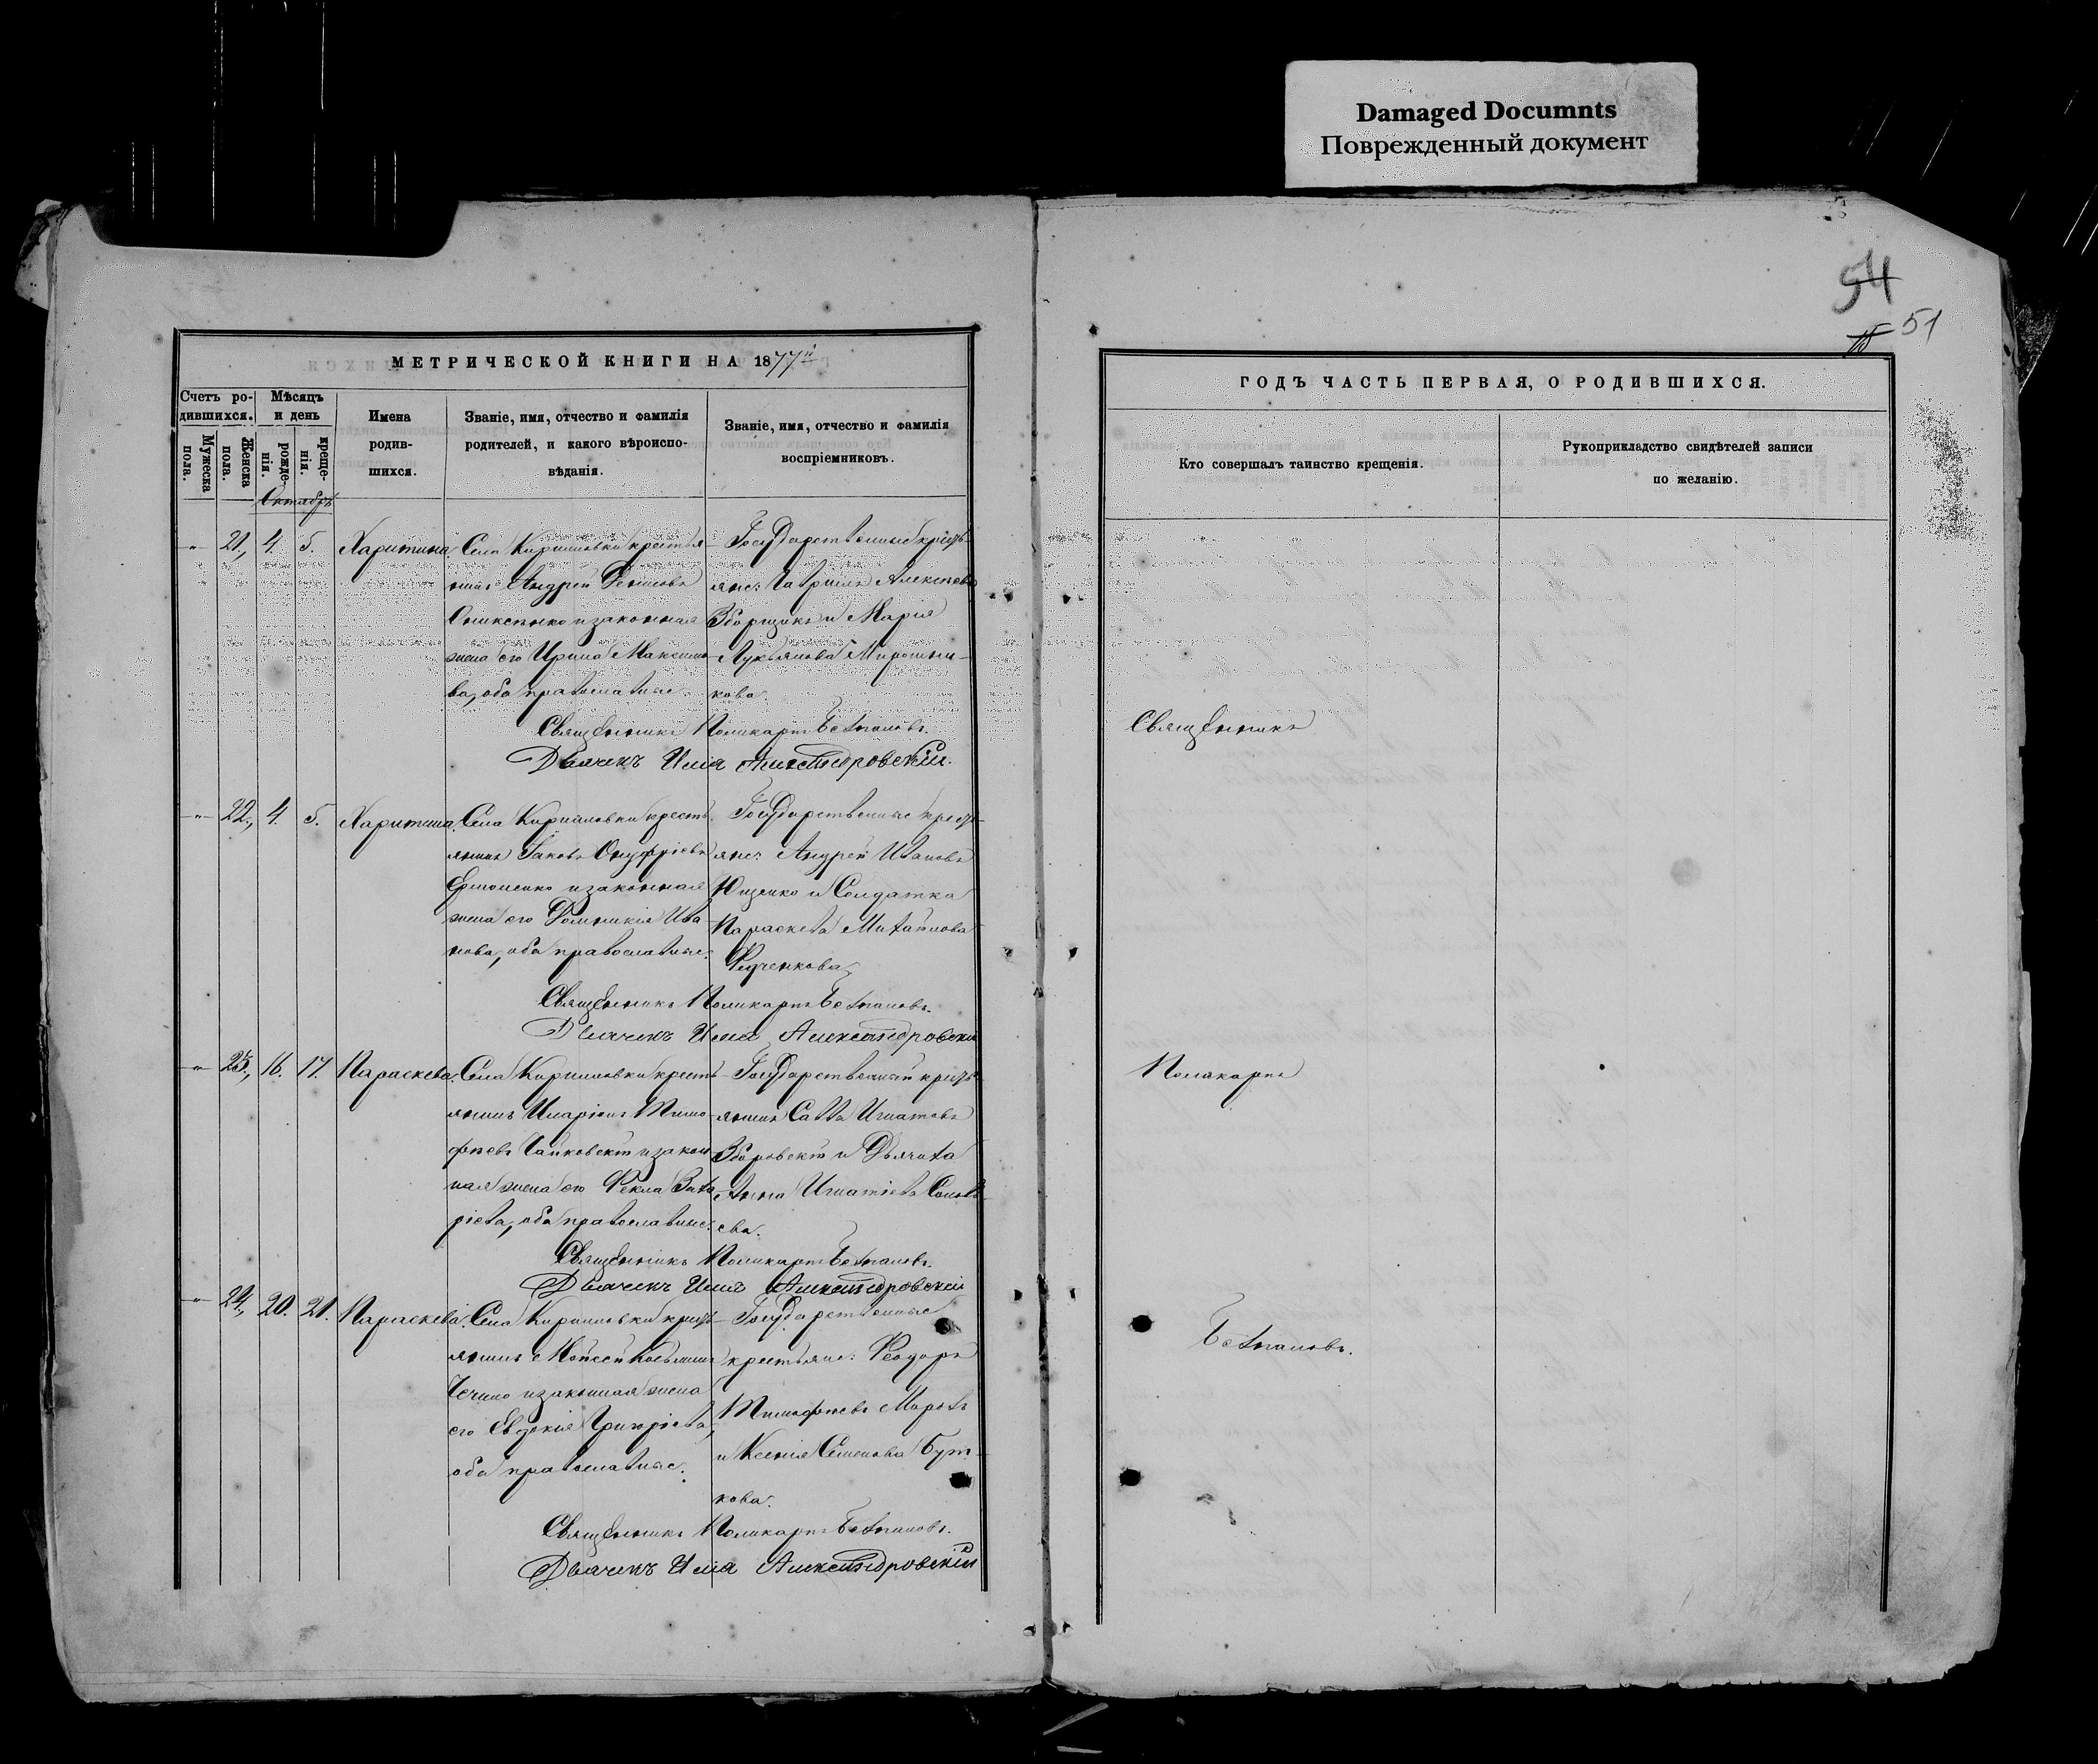 Damaged Documnts
Поврежденный документ
54
15 51
МЕТРИЧЕСКОЙ КНИГИ НА 1877й
Счетъ ро-
дившихся.
Мѣсяцъ
и день
Мужеска
пола.
Женска
пола.
рожде-
нія.
креще-
нія.
Имена
родив-
шихся.
Званіе, имя, отчество и фамилія
родителей, и какого вѣроиспо-
вѣданія.
Званіе, имя, отчество и фамилія
воспріемниковъ.
Октябрь
21, 4. 5. Харитина.
Села Кириловки крестья
нинъ Андрей
и законная
жена его Ирина Максимо
ва, оба православные.
Государственные кресть-
яне: Гавріилъ Алексѣевъ
Зборщикъ и Марія
Лукьянова Мирошни-
кова.
Священникъ Поликарпъ
Дьячекъ Илія Александровскій.
22, 4. 5. Харитина.
Села Кириловки кресть
янинъ Іаковъ Онуфріевъ
Ермоленко и законная
жена его Домникія Ива
нова, оба православные.
Государственные кресть-
яне: Андрей Ивановъ
Ющенко и Солдатка
Параскева Михайлова
Федченкова.
Священникъ Поликарпъ
Дьячекъ Илія Александровскій
23, 16. 17. Параскева.
Села Кириловки кресть
янинъ Иларіонъ Тимо
фѣевъ Чайковскій и закон
ная жена его Фекла Заха
ріева, оба православные.
Государственный кресть
янинъ Савва Игнатовъ
Зборовскій и Дьячиха
Анна Игнатіева Соловь
ева.
Священникъ Поликарпъ
Дьячекъ Илія Александровскій
24, 20. 21. Параскева.
Села Кириловки кресть
янинъ Моисей Козьминъ
и законная жена
его Евдокія Григоріева,
оба православные.
Государственные
крестьяне: Феодоръ
Тимофѣевъ
и Ксенія Семенова Бут-
кова.
Священникъ Поликарпъ
Дьячекъ Илія Александровскій
ГОДЪ ЧАСТЬ ПЕРВАЯ, О РОДИВШИХСЯ.
Кто совершалъ таинство крещенія.
Рукоприкладство свидѣтелей записи
по желанію.
Священникъ
Поликарпъ